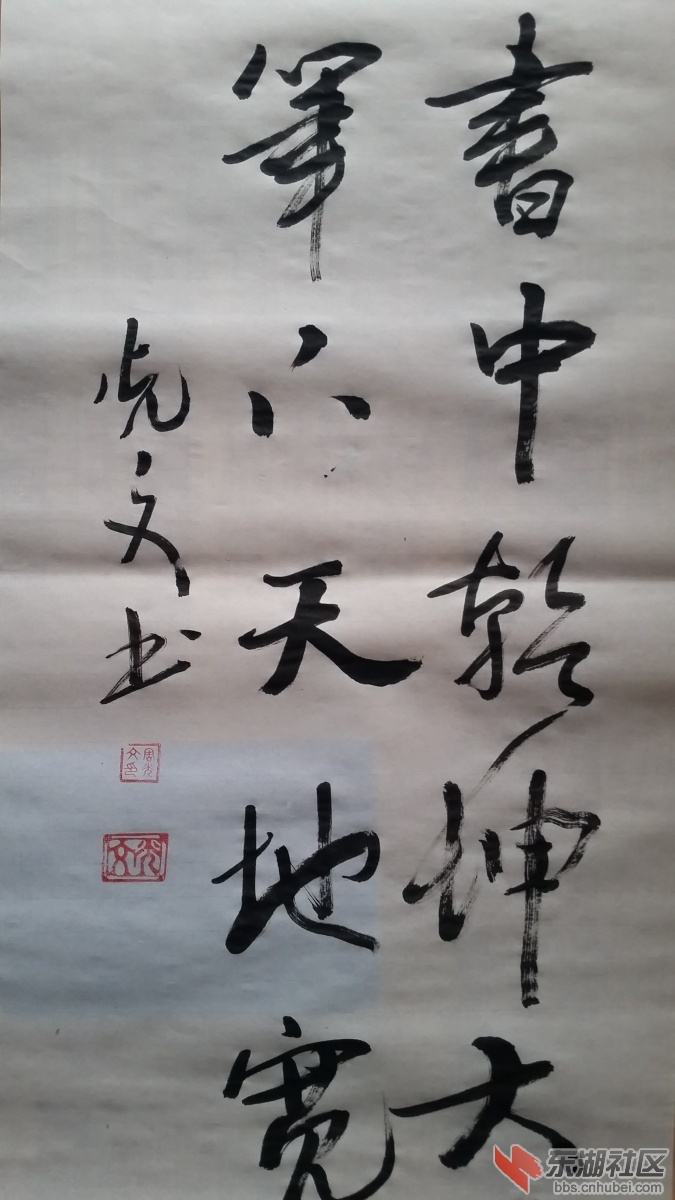 書中乾坤大
筆下天地寬
光文書
周光文印
光文
东湖社区
bbs.cnhubei.com